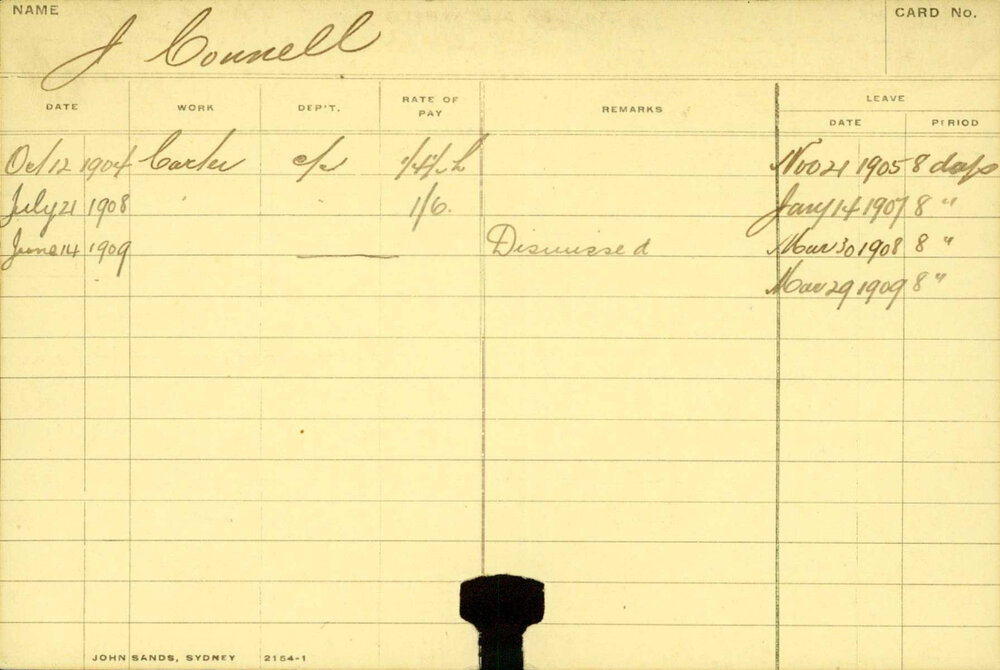 NAME CARD No.
J Connell
DATE WORK DEP'T. RATE OF PAY REMARKS LEAVE
DATE PERIOD
Oct 12 1904 Carter 1/4 p h Nov 21 1905 8 days
July 21 1908 " " 1/6. Jany 14 1907 8 "
June 14 1909 Dismissed Mar 30 1908 8 "
Mar 29 1909 8 "
JOHN SANDS, SYDNEY 2154-1